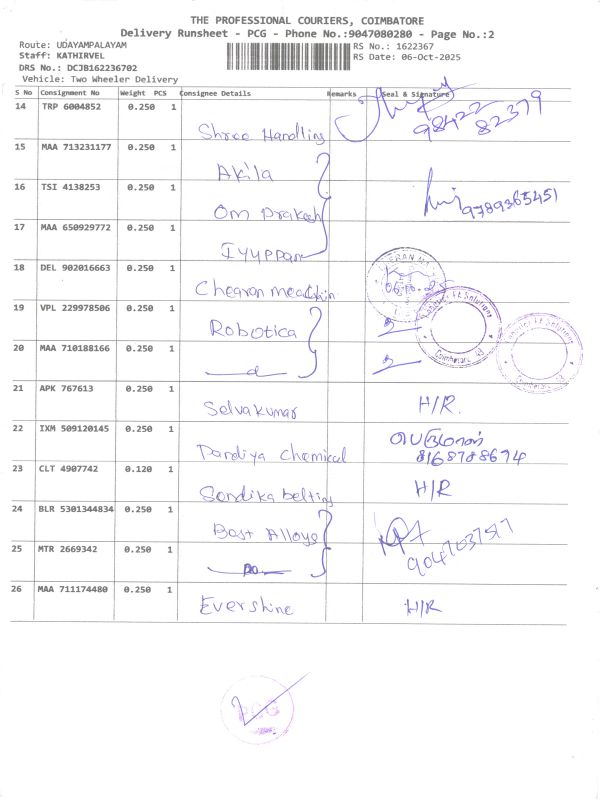 THE PROFESSIONAL COURIERS, COIMBATORE
Delivery Runsheet - PCG - Phone No.:9047080280 - Page No.:2
Route: UDAYAMPALAYAM RS No.: 1622367
Staff: KATHIRVEL RS Date: 06-Oct-2025
DRS No.: DCJB162236702
Vehicle: Two Wheeler Delivery
S No Consignment No Weight PCS Consignee Details Remarks Seal & Signature
14 TRP 6004852 0.250 1 Shree Handling 98422 82379
15 MAA 713231177 0.250 1 Akila
16 TSI 4138253 0.250 1 Om Prakash 9789365451
17 MAA 650929772 0.250 1 Iyyppan
18 DEL 902016663 0.250 1 Cheeran
19 VPL 229978506 0.250 1 Robotica
20 MAA 710188166 0.250 1
21 APK 767613 0.250 1 Selvakumar H/R.
22 IXM 509120145 0.250 1 Pandiya Chemical பெருமாள் 8168788674
23 CLT 4907742 0.120 1 Sondika belting H/R
24 BLR 5301344834 0.250 1 Best Alloys
25 MTR 2669342 0.250 1 DO
26 MAA 711174480 0.250 1 Evershine H/R
PCG